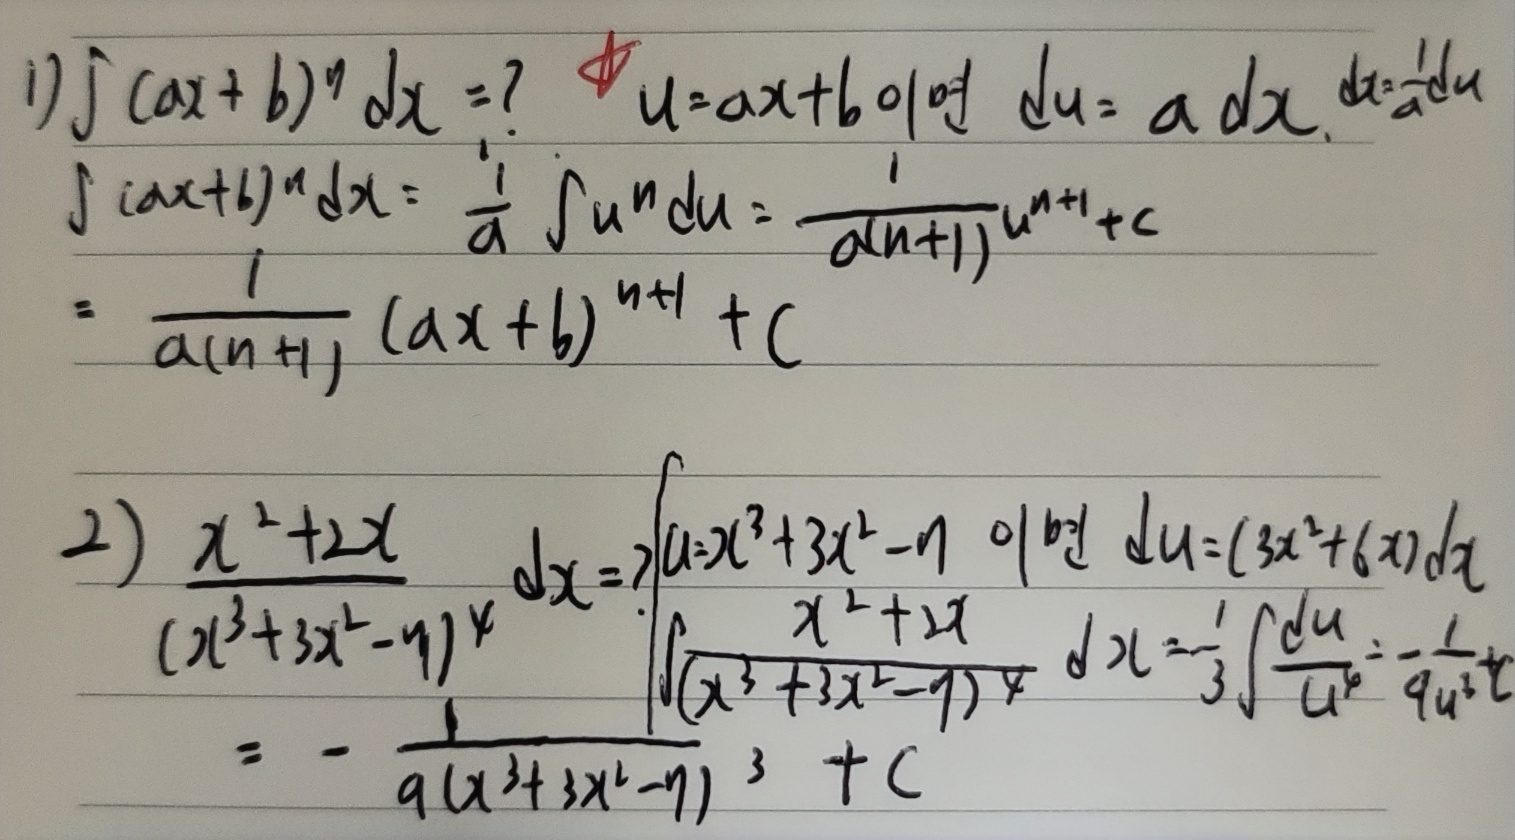 1) ∫ (ax+b)ⁿ dx =? u=ax+b 이면 du= a dx. dx=1/a du
∫ (ax+b)ⁿ dx = 1/a ∫ uⁿ du = 1/(a(n+1)) uⁿ⁺¹ + c
= 1/(a(n+1)) (ax+b)ⁿ⁺¹ + C
2) (x²+2x)/(x³+3x²-7)⁴ dx =? u=x³+3x²-7 이면 du=(3x²+6x)dx
∫ (x²+2x)/(x³+3x²-7)⁴ dx = 1/3 ∫ du/u⁴ = -1/(9u³) + c
= - 1/(9(x³+3x²-7)³) + C